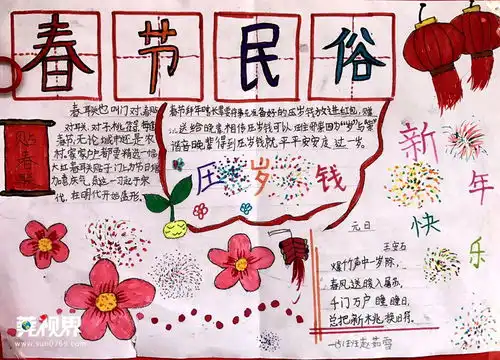 春节民俗
春联也叫门对、春贴
对联、对子、桃符等，每逢
春节，无论城市还是农
村，家家户户都要精选一幅
大红春联贴于门上，为节日增
加喜庆气氛，这一习起于宋
代，在明代开始盛行。
贴春联
春节拜年时长辈要将事先准备好的压岁钱放进红包，
送给晚辈，相传压岁钱可以压住邪祟，因为“岁”与“祟”
谐音，晚辈得到压岁钱就可平平安安度过一岁。
压岁钱
新年快乐
元日
王安石
爆竹声中一岁除，
春风送暖入屠苏。
千门万户曈曈日，
总把新桃换旧符。
莞视界
www.sun0769.com